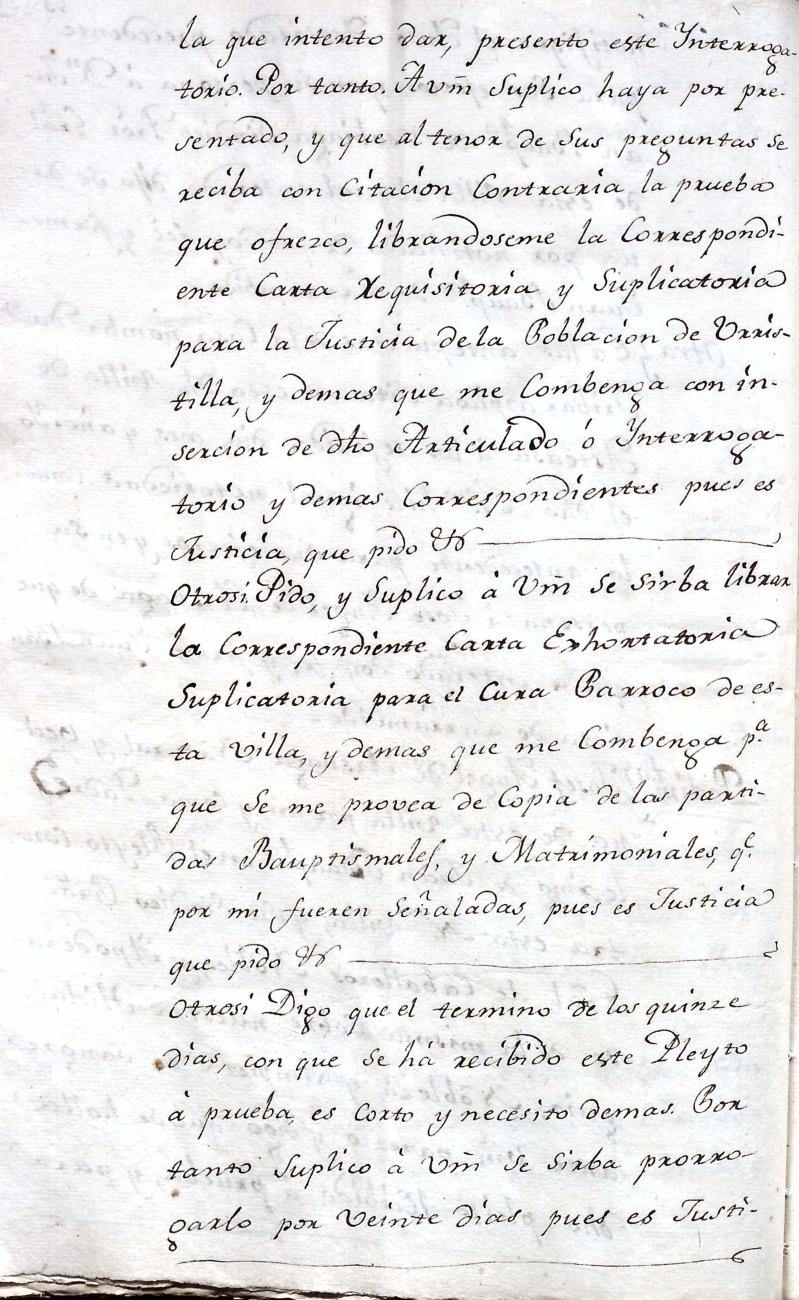 la que intento dar, presento este Ynterroga-
torio. Por tanto. A vm̃ Suplico haya por pre-
sentado, y que al tenor de Sus preguntas se
reciba con Citacion Contraria la prueba
que ofrezco, librandoseme la Correspondi-
ente Carta Requisitoria y Suplicatoria
para la Justicia de la Poblacion de Vrris-
tilla, y demas que me Combenga con in-
sercion de dho Articulado ó Ynterroga-
torio y demas Correspondientes pues es
Justicia, que pido &c
Otrosi. Pido, y Suplico à Vm̃ se sirba librar
la Correspondiente Carta Exhortatoria
Suplicatoria para el Cura Parroco de es-
ta villa, y demas que me Combenga p.ª
que Se me provea de Copia de las parti-
das Bauptismales, y Matrimoniales, q.ᵉ
por mi fueren Señaladas, pues es Justicia
que pido &c
Otrosi Digo que el termino de los quinze
dias, con que se há recibido este Pleyto
à prueba, es corto y necesito demas. Por
tanto Suplico à Vm̃ se sirba prorro-
garlo por veinte dias pues es Justi-